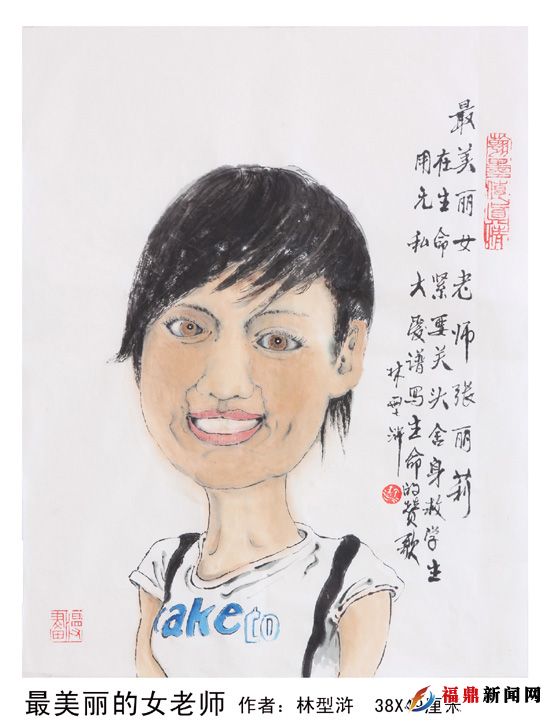 最美丽女老师张丽莉
在生命紧要关头舍身救学生
用无私大爱谱写生命的赞歌
林型浒
take to
最美丽的女老师 作者：林型浒 38X4 厘米
福鼎新闻网